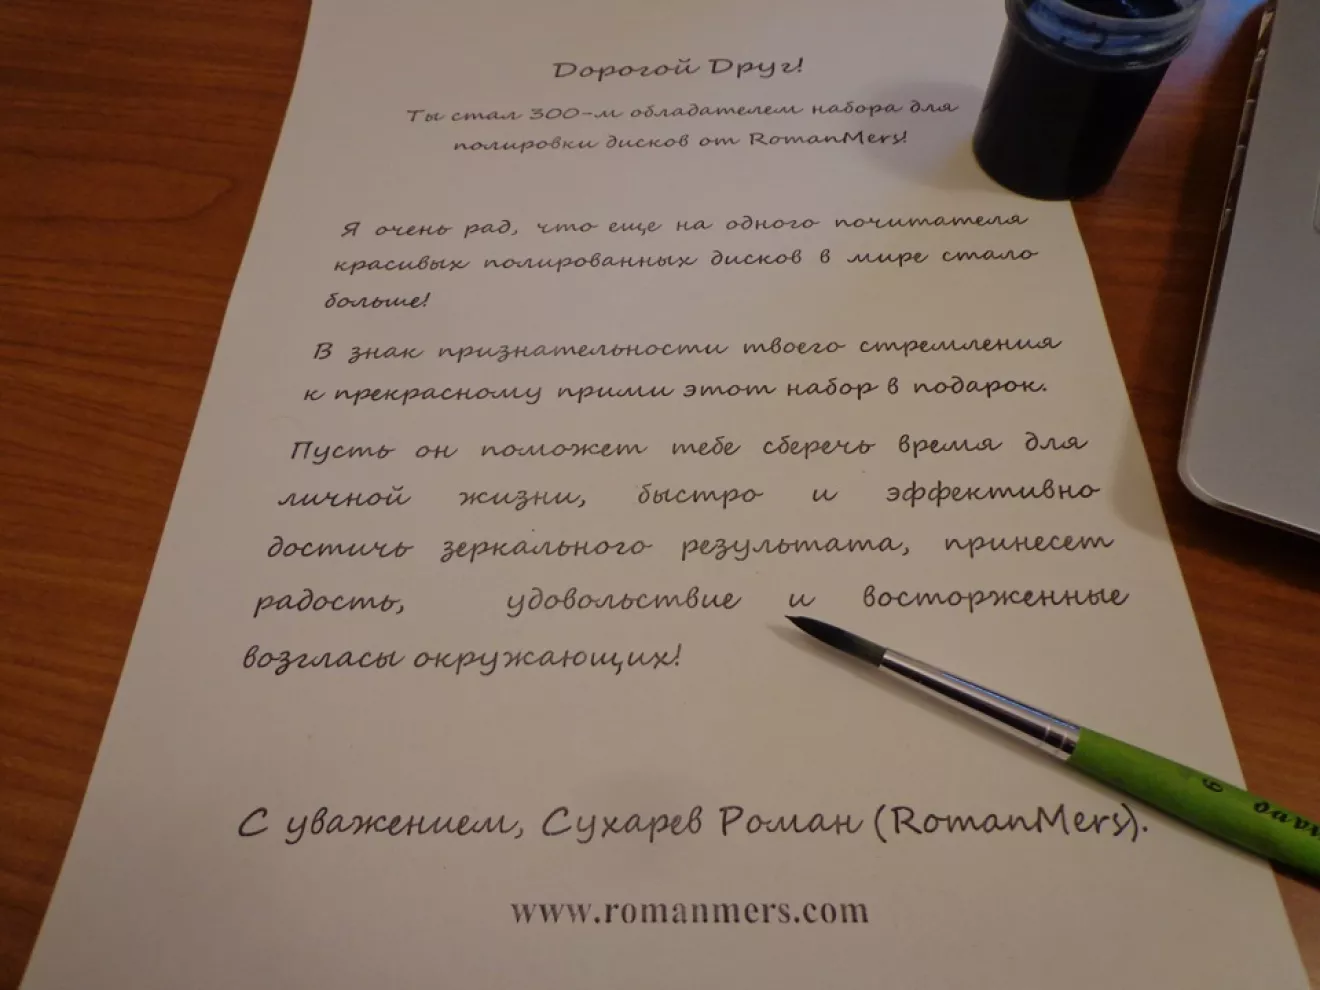 Дорогой Друг!
Ты стал 300-м обладателем набора для
полировки дисков от RomanMers!
Я очень рад, что еще на одного почитателя
красивых полированных дисков в мире стало
больше!
В знак признательности твоего стремления
к прекрасному прими этот набор в подарок.
Пусть он поможет тебе сберечь время для
личной жизни, быстро и эффективно
достичь зеркального результата, принесет
радость, удовольствие и восторженные
возгласы окружающих!
С уважением, Сухарев Роман (RomanMers).
www.romanmers.com